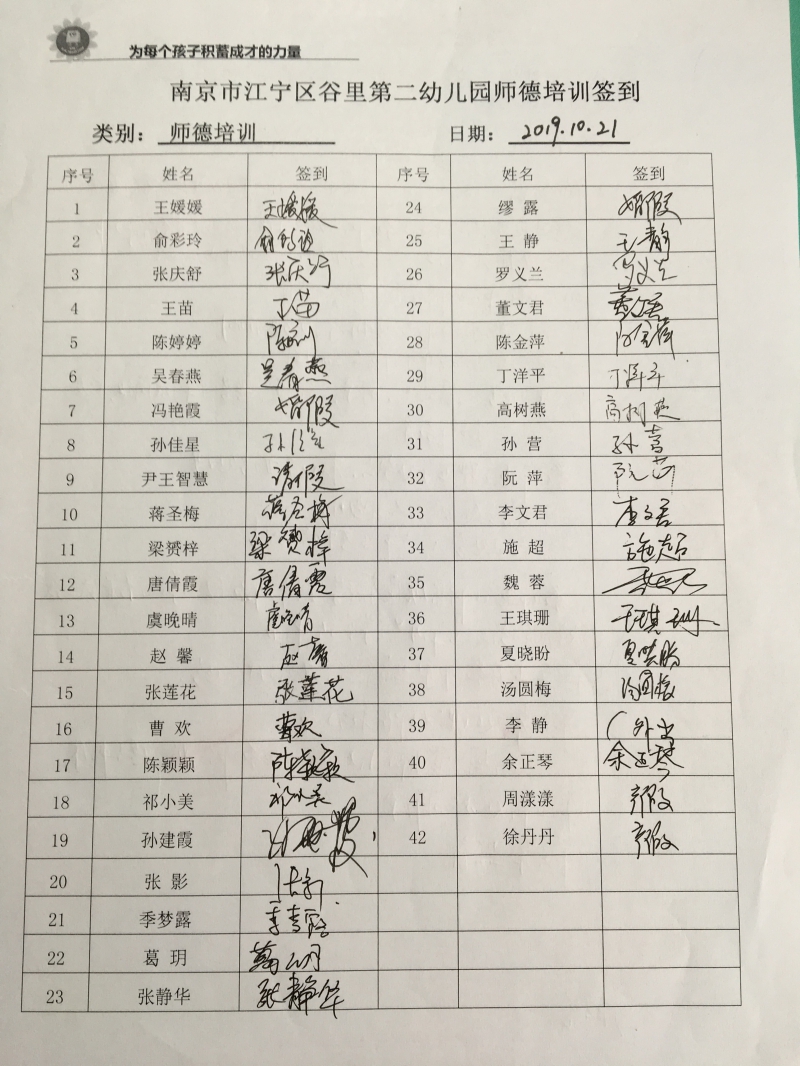 为每个孩子积蓄成才的力量
南京市江宁区谷里第二幼儿园师德培训签到
类别： 师德培训 日期： 2019.10.21
序号 姓名 签到 序号 姓名 签到
1 王媛媛 王媛媛 24 缪露 婚假
2 俞彩玲 俞彩玲 25 王静 王静
3 张庆舒 张庆舒 26 罗义兰 罗义兰
4 王苗 王苗 27 董文君 董文君
5 陈婷婷 28 陈金萍 陈金萍
6 吴春燕 吴春燕 29 丁洋平 丁洋平
7 冯艳霞 婚假 30 高树燕 高树燕
8 孙佳星 孙佳星 31 孙营 孙营
9 尹王智慧 请假 32 阮萍 阮萍
10 蒋圣梅 蒋圣梅 33 李文君 李文君
11 梁赟梓 梁赟梓 34 施超 施超
12 唐倩霞 唐倩霞 35 魏蓉
13 虞晚晴 36 王琪珊 王琪珊
14 赵馨 赵馨 37 夏晓盼 夏晓盼
15 张莲花 张莲花 38 汤圆梅 汤圆梅
16 曹欢 曹欢 39 李静 外出
17 陈颖颖 陈颖颖 40 余正琴 余正琴
18 祁小美 祁小美 41 周漾漾 产假
19 孙建霞 42 徐丹丹 产假
20 张影 张影
21 季梦露 季梦露
22 葛玥 葛玥
23 张静华 张静华